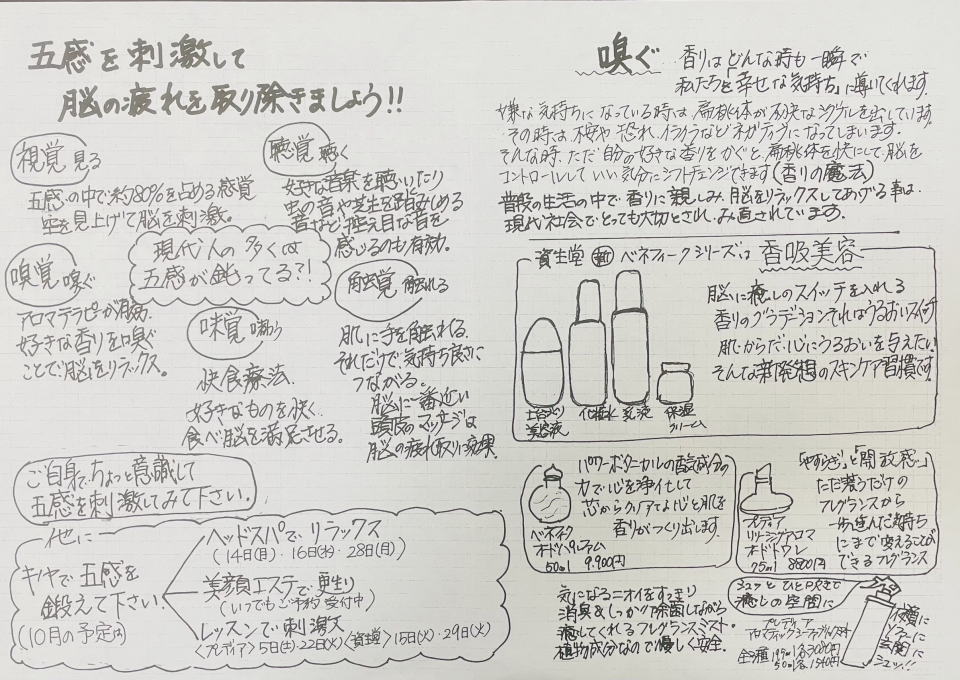 五感を刺激して
脳の疲れを取り除きましょう!!
視覚 見る
五感の中で約80%を占める感覚
空を見上げて脳を刺激。
聴覚 聴く
好きな音楽を聴いたり
虫の音や芝生を踏みしめる
音など、控え目な音を
感じるのも有効。
現代人の多くは
五感が鈍ってる?!
嗅覚 嗅ぐ
アロマテラピーが有効。
好きな香りを嗅ぐ
ことで脳をリラックス。
味覚 味わう
快食療法。
好きなものを快く
食べ脳を満足させる。
触覚 触れる
肌に手を触れる。
それだけで、気持ち良さに
つながる。
脳に一番近い
頭皮のマッサージは
脳の疲れ取りに効果。
ご自身で、ちょっと意識して
五感を刺激してみて下さい。
他に
キノヤで五感を
鍛えて下さい。
(10月の予定は)
ヘッドスパでリラックス
(14日(月)・16日(水)・28日(月))
美顔エステで
(いつでもご予約受付中)
レッスンで刺激
〈プレディア〉5日(土)・22日(火)〈資生堂〉15日(火)・29日(火)
嗅ぐ
香りはどんな時も一瞬で
私たちを「幸せな気持ち」に導いてくれます。
嫌な気持ちになっている時は扁桃体が不快なシグナルを出しています。
その時は不安や恐れ、イライラなどネガティブになってしまいます。
そんな時、ただ自分の好きな香りをかぐと、扁桃体を快にして、脳を
コントロールしていい気分にシフトチェンジできます(香りの魔法)
普段の生活の中で香りに親しみ、脳をリラックスしてあげる事は
現代社会でとっても大切とされ、み直されています。
資生堂 新 ベネフィークシリーズは 香吸美容
脳に癒しのスイッチを入れる
香りのグラデーションそれはうるおいスイッチ
肌・からだ・心にうるおいを与えたい
そんな新発想のスキンケア習慣です
土台づくり
美容液
化粧水
乳液
保湿
クリーム
パワーボタニカルの香気成分の
力で心を浄化して
芯からクリアでよい心と肌を
香りがつくり出します。
ベネフィーク
オードパルファム
50ml 9.900円
「やすらぎ」と「開放感」
ただ纏うだけの
フレグランスから
一歩進んだ気持ち
にまで変えることが
できるフレグランス
プレディア
リリーシングアロマ
オードトワレ
75ml 8800円
気になるニオイをすっきり
消臭&しっかり除菌しながら
癒してくれるフレグランスミスト。
植物成分なので優しく安全。
シュッとひと吹きで
癒しの空間に
プレディア
アロマティックミスト
全3種 195ml 各3080円
50ml 各1540円
衣類に
ソファーに
玄関に
シュッ!!